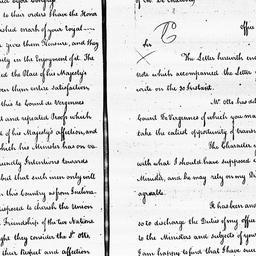 to their orders I have the Honor
mark of your Royal
give them Pleasure, and they
in the Enjoyment of it. The
the Place of his Majesty's
them entire satisfaction
this to Count de Vergennes
and repeated Proof which
of his Majesty's affection, and
which his Minister has on va
friendly Intentions towards
that such men only will
this Country as from Inclina
disposed to cherish the Union
Friendship of the two Nations
they consider the Sr. Otto,
their Respect and affection
Office
Sir
The Letter herewith enc
note which accompanied the Letter
write on the 30 Instant.
Mr. Otto has del
Count De Vergennes of which you ma
take the earliest opportunity of trans
The Character
with what I should have supposed
Minister, and he may rely on my D
agreable.
It has been and
so to discharge the Duties of my office
to the Ministers and subjects of your
I am happy to find that I have succ